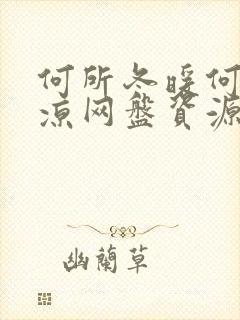 何所冬暖何
凉网盘资源
幽蘭草